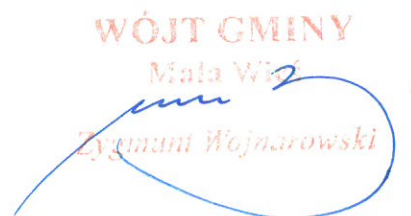 WÓJT GMINY
Mała Wieś
Zygmunt Wojnarowski